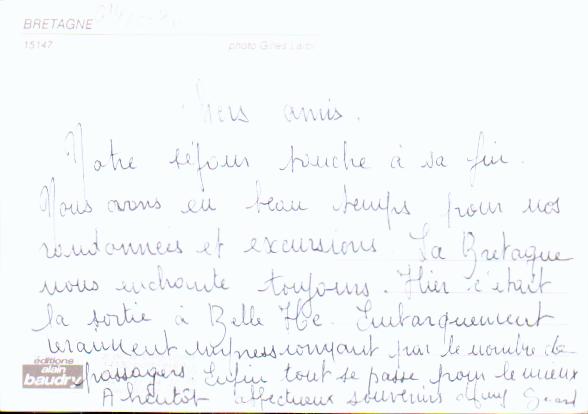 BRETAGNE
15147
photo Gilles
Chers amis.
Notre séjour touche à sa fin.
Nous avons eu beau temps pour nos
randonnées et excursions. La Bretagne
nous enchante toujours. Hier c'était
la sortie à Belle Ile. Embarquement
vraiment impressionnant par le nombre de
passagers. Enfin tout se passe pour le mieux
A bientôt affectueux souvenirs
éditions
alain
baudry